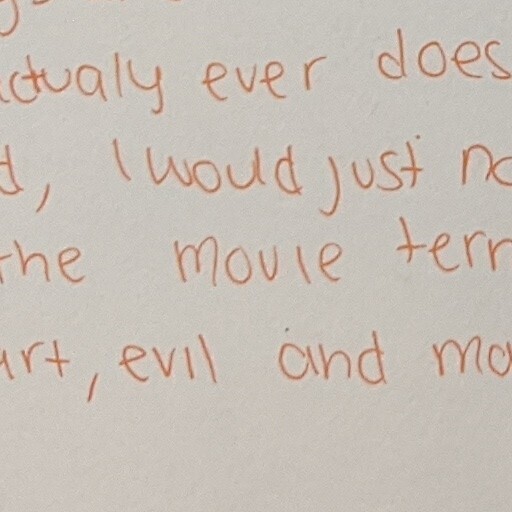 ctualy ever does
d, I would just no
the movie terr
art, evil and ma